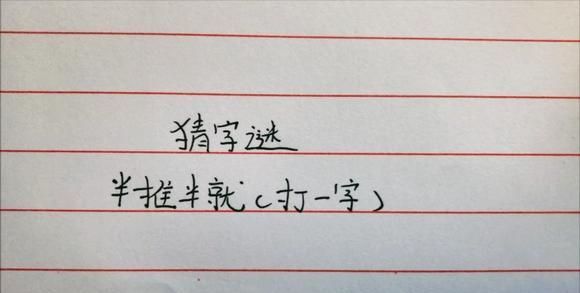 猜字谜
半推半就(打一字)